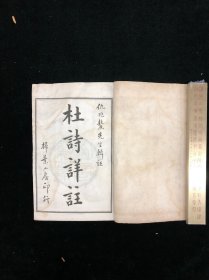 仇兆鰲先生輯註
杜詩詳註
掃葉山房印行